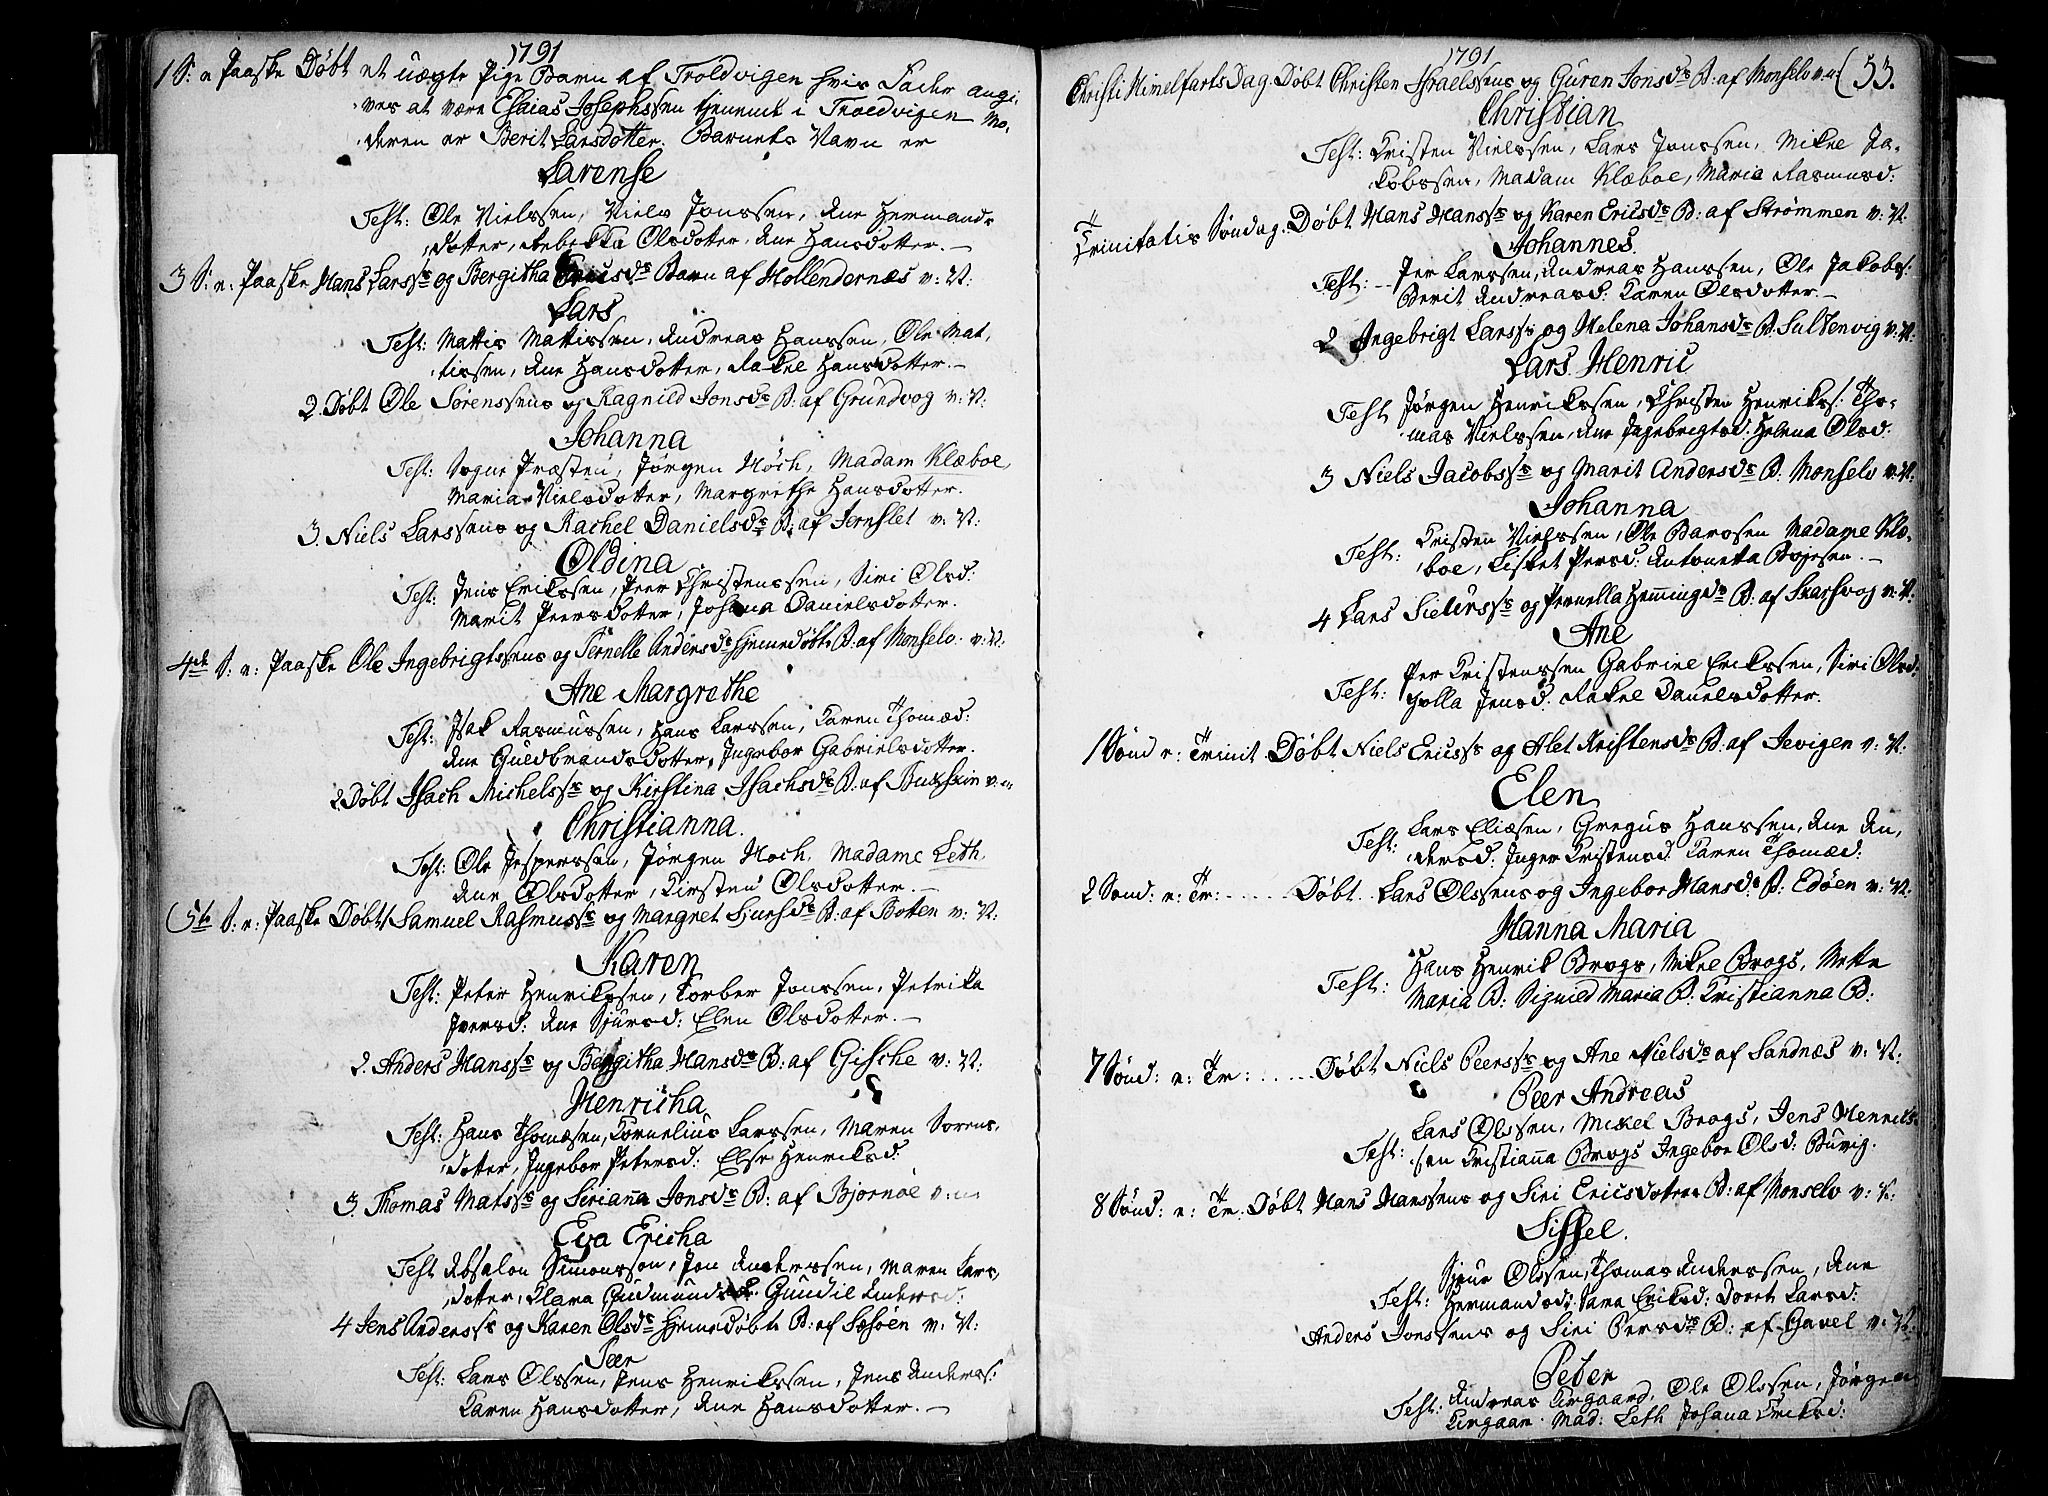 1791
1 S: e Paaske Døbt et uægte Pige Barn af Troldvigen hvis Fader angi,
ves at være Esaias Josephssen tjenende i Troldvigen Mo,
deren er Berit Larsdotter. Barnets Navn er
Larense
Test: Ole Nielssen, Niels Jonssen, Ane Hermands
dotter, Rebekka Olsdotter, Ane Hansdotter.
3 S: e: Paaske Hans Larss og Bergitha Ericsd Barn af Hollendernæs v: N:
Lars
Test: Mattis Mattissen, Andreas Hanssen, Ole Mat,
tissen, Ane Hansdotter, Rakel Hansdotter.
2. Døbt Ole Sørenssens og Ragnild Jonsd B: af Grundvog v: N:
Johanna
Test: Sogne Præsten, Jørgen Höch, Madam Klæboe,
Maria Nielsdotter, Margrethe Hansdotter.
3. Niels Larssens og Rachel Danielsd B: af Jernslet v: N:
Oldina
Test: Jens Erikssen, Peer Christenssen, Siri Olsd:
Marit Peersdotter, Johana Danielsdotter.
4de S: e: Paaske Ole Ingebrigtssens og Pernelle Andersd hjemedøbte B: af Monselv. v: N:
Ane Margrethe
Test: Isak Rasmussen, Hans Larssen, Karen Thomæd:
Ane Guldbrandsdotter, Ingebor Gabrielsdotter.
2 Døbt Isach Michelss og Kirstina Isachsd B: af Buxskin v:
Christianna.
Test: Ole Jesperssen, Jørgen Hoch, Madame Leth
Ane Olsdotter, Kirsten Olsdotter.
5te S: e: Paaske Døbt 1 Samuel Rasmuss og Margret Sjursd B: af Botten v: N:
Karen
Test: Peter Henrikssen, Torber Jonssen, Petrika
Iversd: Ane Sjursd: Elen Olsdotter.
2. Anders Hanss og Bergitha Hansd B: af Gissche v: N:
Henricha
Test: Hans Thomæsen, Cornelius Larssen, Maren Sorens,
dotter, Ingebor Petersd: Else Henriksd
3. Thomas Matss og Sirianna Jonsd B: af Bjornoe v:
Eva Ericha
Test Absalon Simonsson, Jon Anderssen, Maren Lars,
dotter, Klara Gudmunds Gundil Andersd:
4 Jens Anderss og Karen Olsd hjemedøbte B: af Sæsöen v: N:
Peer
Test: Lars Olssen, Jens Henrikssen, Jens Anders:
Karen Hansdotter, Ane Hansdotter.
1791
53.
Christi Himelfarts Dag. Døbt Christen Israelssens og Guren Jonsd B: af Monselv v:
Christian
Test: Kristen Nielssen, Lars Jonssen, Mikel Ja,
kobssen, Madam Klæboe, Maria Rasmusd:
Trinitatis Søndag. Døbt Hans Hanss og Karen Ericsd B: af Strømmen v: N.
Johannes.
Test: Per Larssen, Andreas Hanssen, Ole Jakobs:
Berit Andreasd: Karen Olsdotter.
2 Ingebrigt Larss og Helena Johansd B. Sultenvig v: N:
Lars Henric
Test Jørgen Henrikssen, Christen Henriks: Tho,
mas Nielssen, Ane Ingebrigtsd: Helena Olsd:
3 Niels Jacobss og Marit Andersd B: Monselv v: N:
Johanna
Test: Kristen Nielssen, Ole Barosen Madame Klæ,
boe, Lisbet Persd: Antonetta Boyesen.
4 Lars Sieürss og Pernella Hemmingsd B: af Skarsvog v: N:
Ane
Test: Per Kristenssen Gabriel Erikssen, Siri Olsd:
Hylla Jensd: Rakel Danielsdotter.
1 Sønd e: Trinit Døbt Niels Ericss og Alet Kristensd B: af Jevigen v: N:
Elen
Test: Lars Eliæsen, Gregus Hanssen, Ane An,
dersd: Inger Kristensd Karen Thomæd:
2 Sønd: e: Tr: Døbt Lars Olssens og Ingebor Hansd B: Edøen v: N:
Hanna Maria
Test: Hans Henrik Brogs, Mikel Brogs, Mette
Maria B: Signild Maria B: Kristianna B:
7 Sønd: e: Tr: Døbt Niels Peerss og Ane Nielsd af Sandnæs v: N:
Peer Andreas
Test: Lars Olssen, Mikel Brogs, Jens Henrik
sen Kristianna Brogs Ingebor Olsd: Buvig.
8 Sønd: e: Tr: Døbt Hans Hanssens og Siri Ericsdotter B: af Monselv v: N:
Sissel.
Test: Sjur Olssen, Thomas Anderssen, Ane
Hermandsd: Sara Eriksd: Doret Larsd:
Anders Jonssens og Siri Persd B: af Gavel v: N:
Peter
Test: Andreas Kirgaard, Ole Olssen, Jørgen
Kirgaar. Mad: Leth Johana Eriksd: